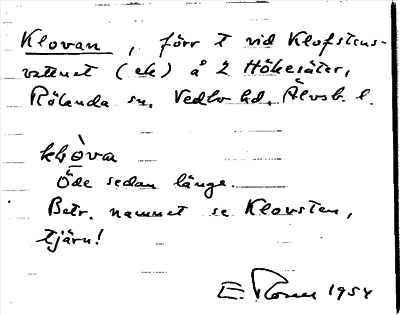 Klovan, förr t vid Klofstens-
vattnet (ek) å 2 Hökesäter,
Rölanda sn. Vedbo hd. Älvsb. l.
klòva
Öde sedan länge.
Betr. namnet se Klovsten,
tjärn!
E. 1954